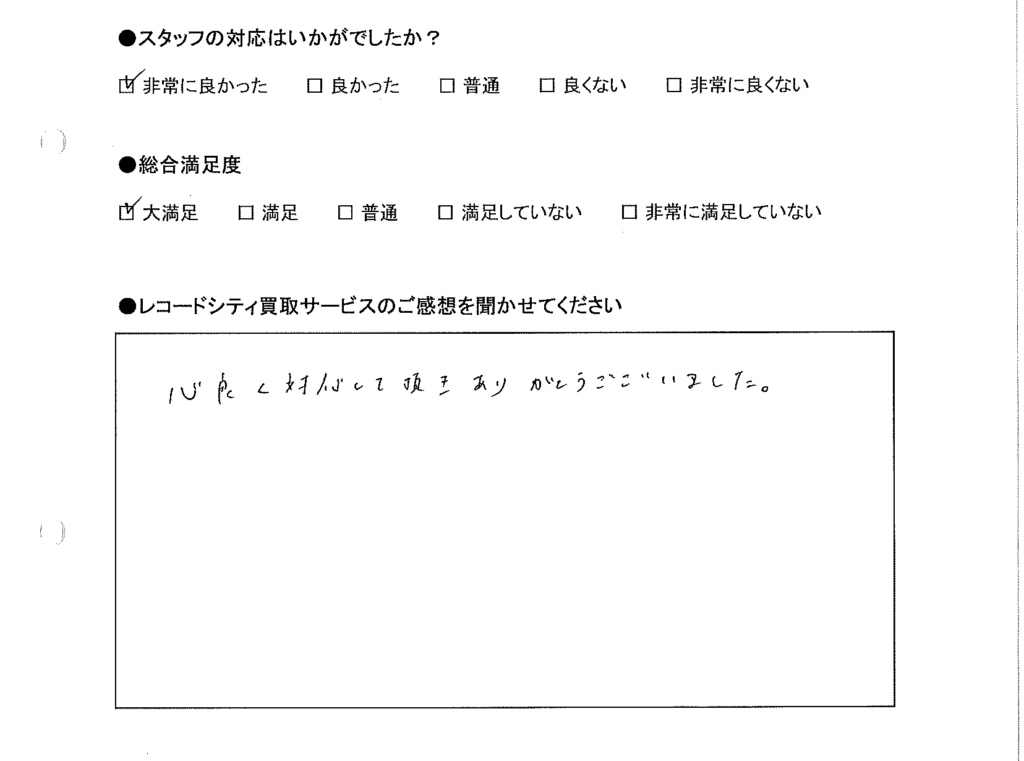 ●スタッフの対応はいかがでしたか？
☑ 非常に良かった □ 良かった □ 普通 □ 良くない □ 非常に良くない
●総合満足度
☑ 大満足 □ 満足 □ 普通 □ 満足していない □ 非常に満足していない
●レコードシティ買取サービスのご感想を聞かせてください
心良く対応して頂きありがとうございました。